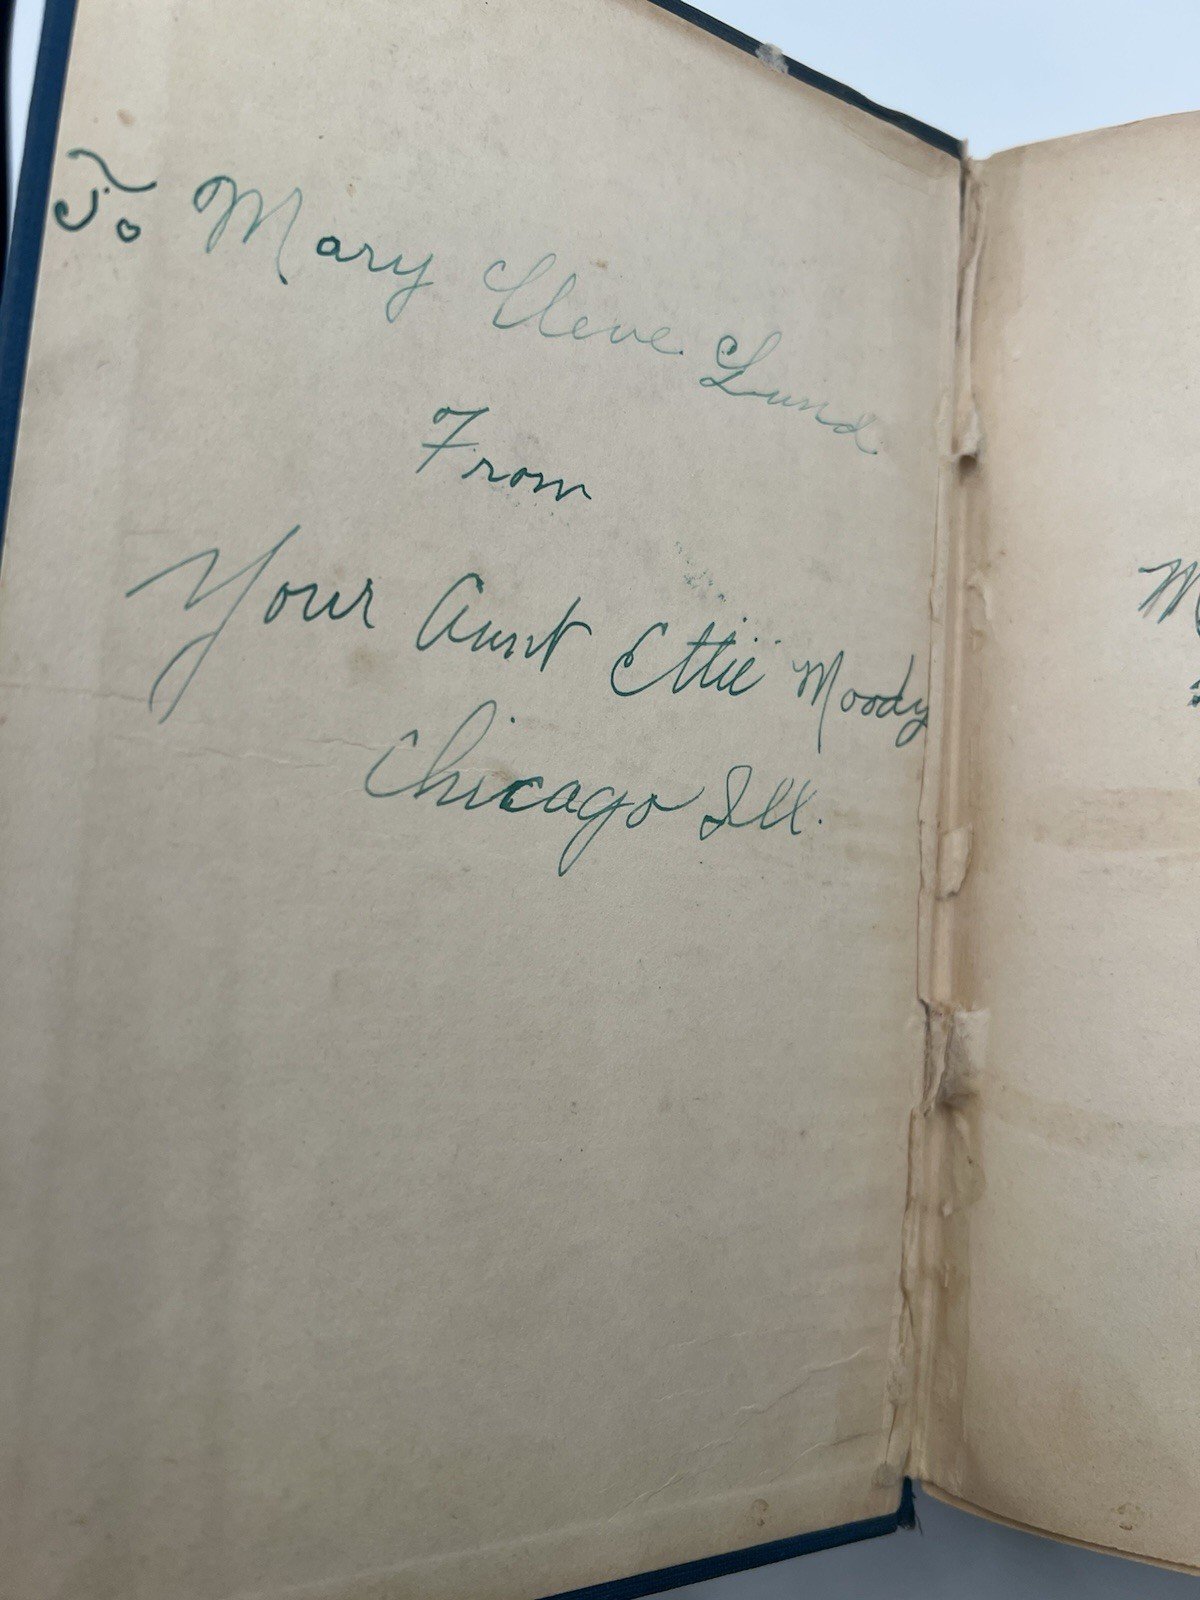 To Mary Cleve Lund
From
Your Aunt Ettie Moody
Chicago Ill.